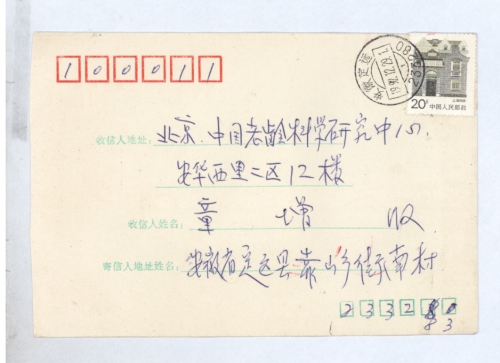 100011
20 中国人民邮政
收信人地址: 北京.中国老龄科学研究中心.
安华西里二区12楼
收信人姓名: 章 增 收
寄信人地址姓名: 安徽省定远县靠山乡街南村
233280
83